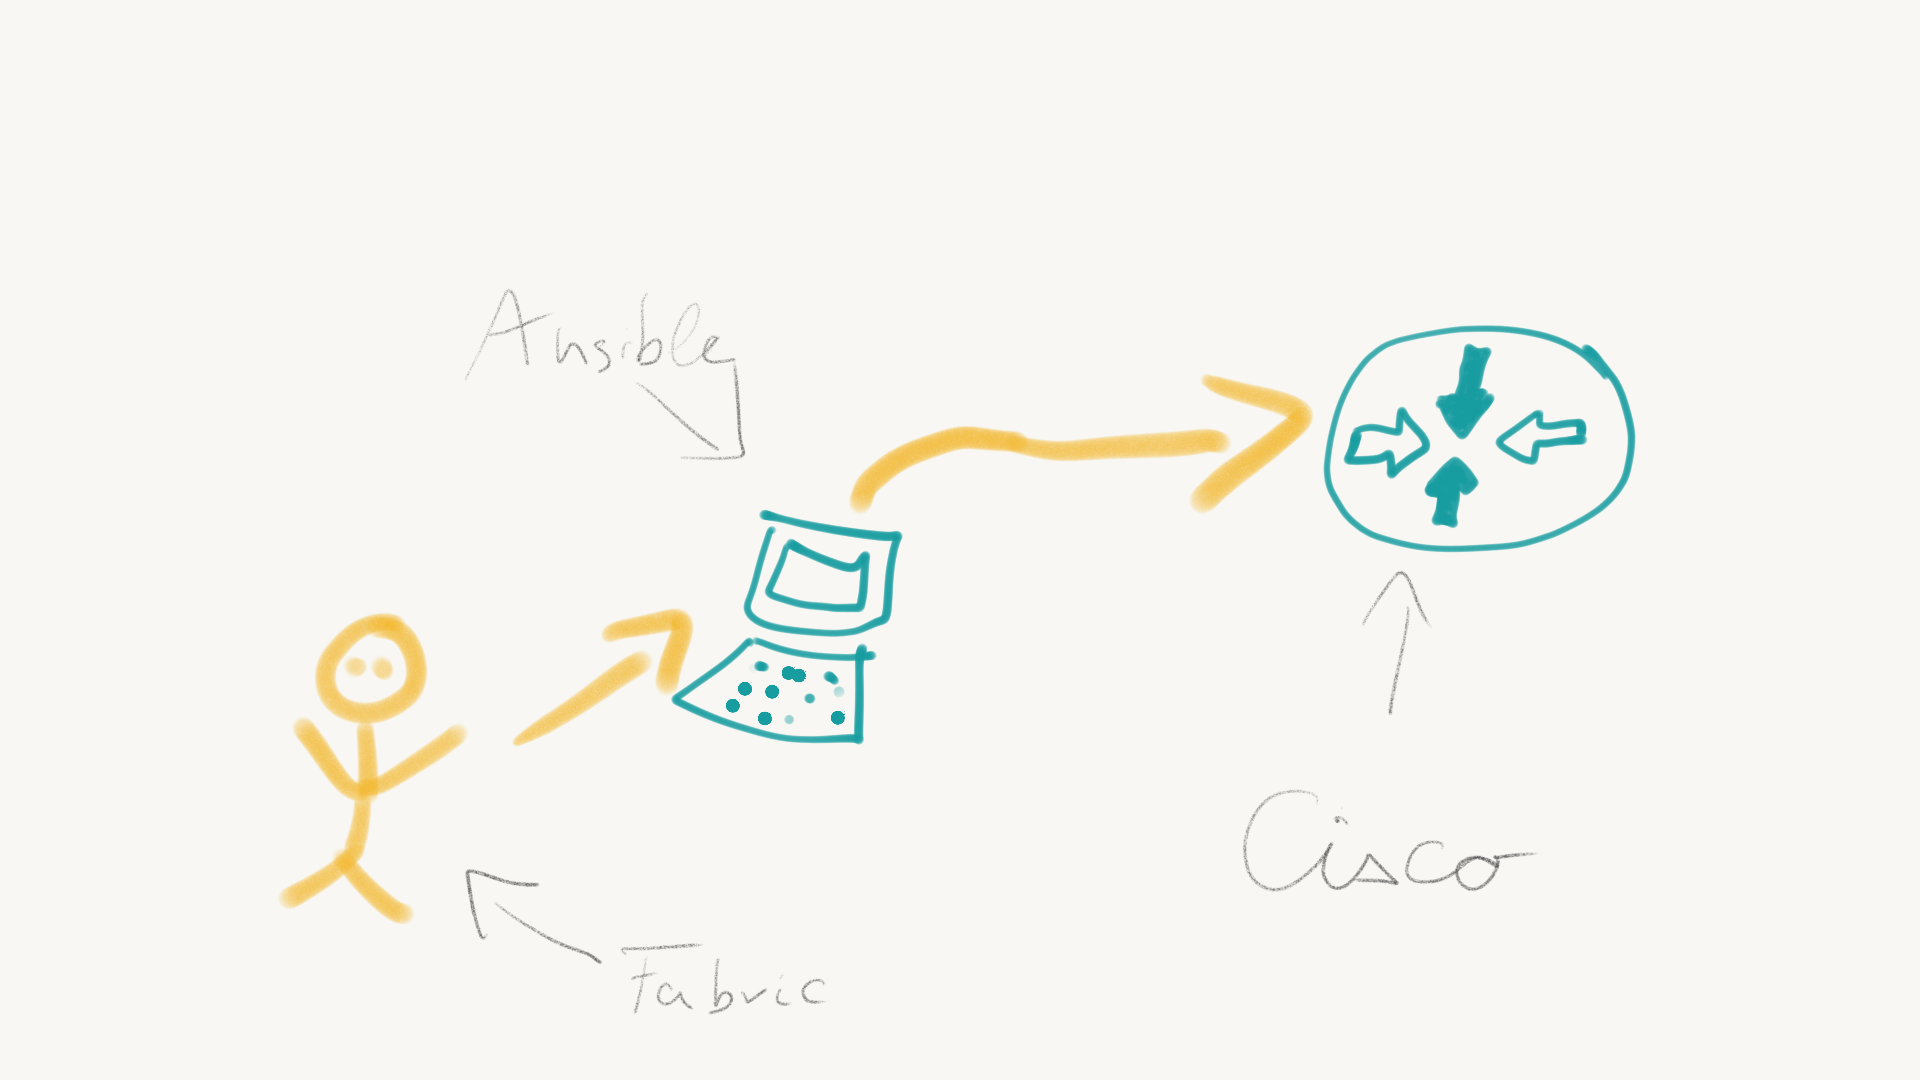 Ansible
Cisco
Fabric